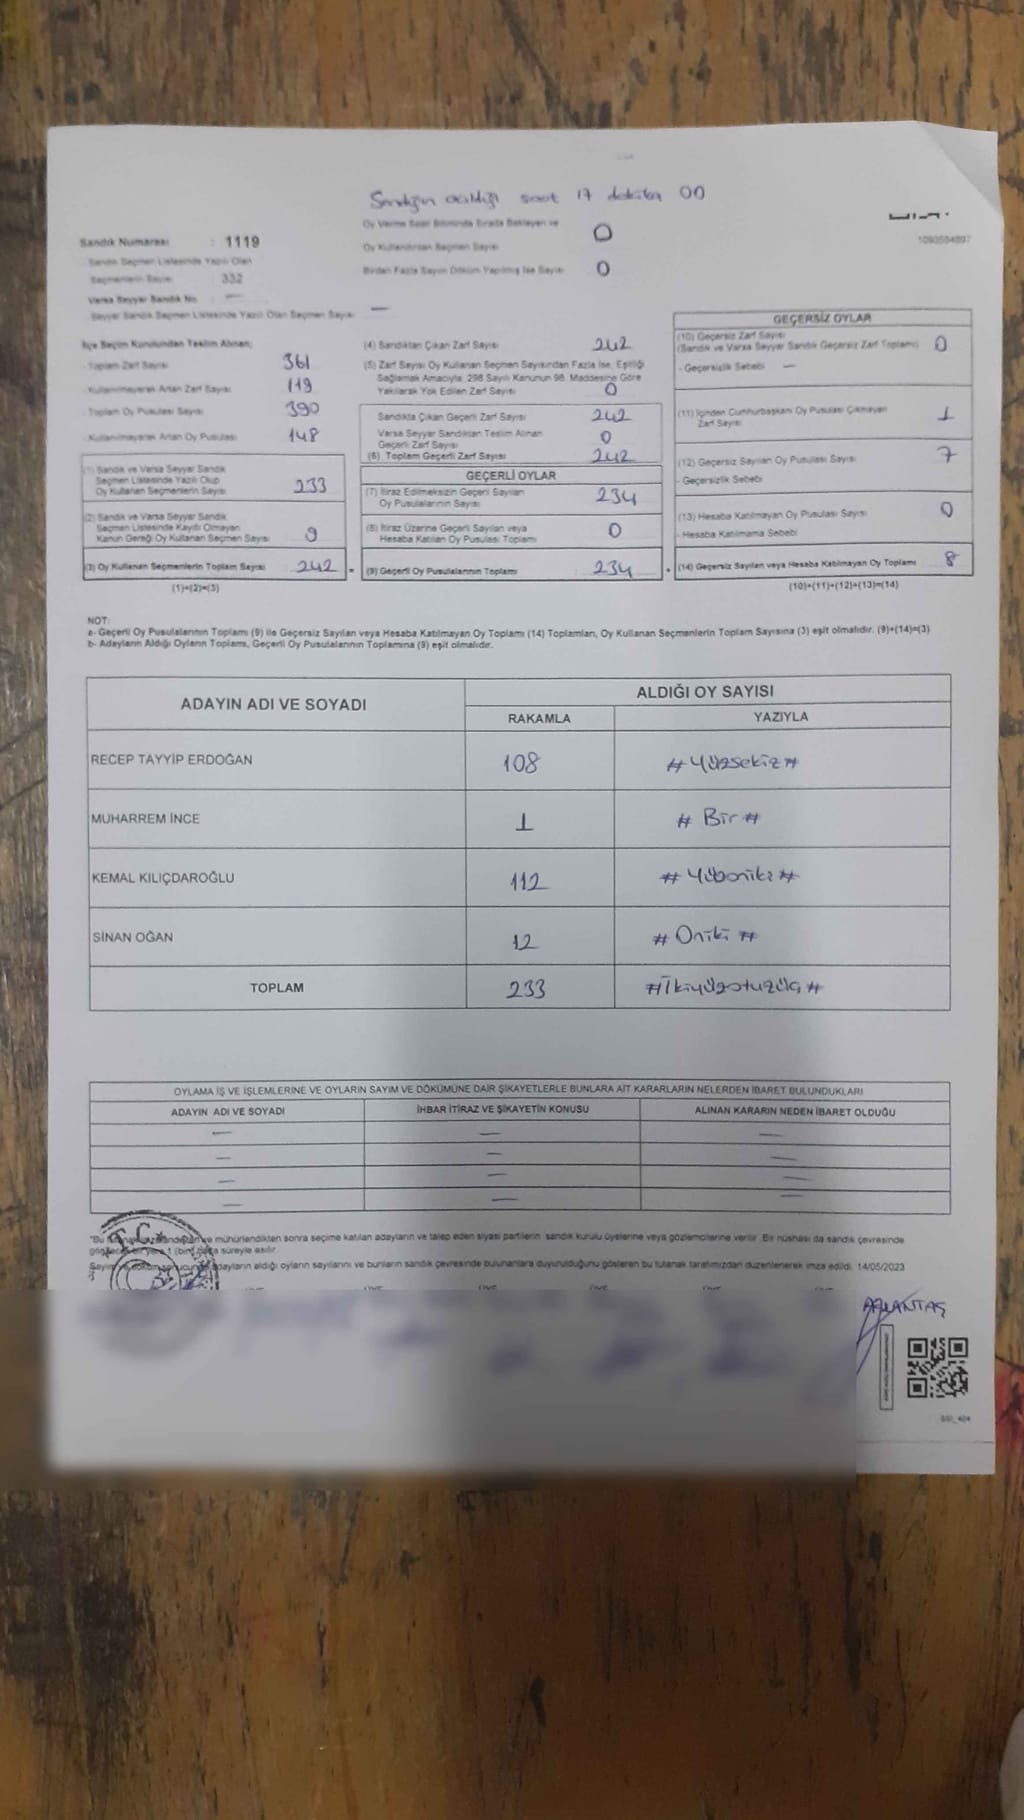 Sandığın açıldığı saat 17 dakika 00
Oy Verme Saati Bitiminde Sırada Bekleyen ve
Oy Kullandırılan Seçmen Sayısı 0
Birden Fazla Sayım Döküm Yapılmış İse Sayısı 0
1093594897
Sandık Numarası : 1119
Sandık Seçmen Listesinde Yazılı Olan
Seçmenlerin Sayısı 332
Varsa Seyyar Sandık No : —
Seyyar Sandık Seçmen Listesinde Yazılı Olan Seçmen Sayısı —
İlçe Seçim Kurulundan Teslim Alınan;
- Toplam Zarf Sayısı 361
- Kullanılmayarak Artan Zarf Sayısı 119
- Toplam Oy Pusulası Sayısı 390
- Kullanılmayarak Artan Oy Pusulası 148
(1) Sandık ve Varsa Seyyar Sandık
Seçmen Listesinde Yazılı Olup
Oy Kullanan Seçmenlerin Sayısı 233
(2) Sandık ve Varsa Seyyar Sandık
Seçmen Listesinde Kayıtlı Olmayan
Kanun Gereği Oy Kullanan Seçmen Sayısı 9
(3) Oy Kullanan Seçmenlerin Toplam Sayısı 242 =
(1)+(2)=(3)
(4) Sandıktan Çıkan Zarf Sayısı 242
(5) Zarf Sayısı Oy Kullanan Seçmen Sayısından Fazla İse, Eşitliği
Sağlamak Amacıyla, 298 Sayılı Kanunun 98. Maddesine Göre
Yakılarak Yok Edilen Zarf Sayısı 0
Sandıkta Çıkan Geçerli Zarf Sayısı 242
Varsa Seyyar Sandıktan Teslim Alınan
Geçerli Zarf Sayısı 0
(6) Toplam Geçerli Zarf Sayısı 242
GEÇERLİ OYLAR
(7) İtiraz Edilmeksizin Geçerli Sayılan
Oy Pusulalarının Sayısı 234
(8) İtiraz Üzerine Geçerli Sayılan veya
Hesaba Katılan Oy Pusulası Toplamı 0
(9) Geçerli Oy Pusulalarının Toplamı 234 +
GEÇERSİZ OYLAR
(10) Geçersiz Zarf Sayısı
(Sandık ve Varsa Seyyar Sandık Geçersiz Zarf Toplamı) 0
- Geçersizlik Sebebi —
(11) İçinden Cumhurbaşkanı Oy Pusulası Çıkmayan
Zarf Sayısı 1
(12) Geçersiz Sayılan Oy Pusulası Sayısı 7
- Geçersizlik Sebebi
(13) Hesaba Katılmayan Oy Pusulası Sayısı 0
- Hesaba Katılmama Sebebi
(14) Geçersiz Sayılan veya Hesaba Katılmayan Oy Toplamı 8
(10)+(11)+(12)+(13)=(14)
NOT:
a- Geçerli Oy Pusulalarının Toplamı (9) ile Geçersiz Sayılan veya Hesaba Katılmayan Oy Toplamı (14) Toplamları, Oy Kullanan Seçmenlerin Toplam Sayısına (3) eşit olmalıdır. (9)+(14)=(3)
b- Adayların Aldığı Oyların Toplamı, Geçerli Oy Pusulalarının Toplamına (9) eşit olmalıdır.
ADAYIN ADI VE SOYADI ALDIĞI OY SAYISI
RAKAMLA YAZIYLA
RECEP TAYYİP ERDOĞAN 108 #Yüzsekiz#
MUHARREM İNCE 1 #Bir#
KEMAL KILIÇDAROĞLU 112 #Yüzoniki#
SİNAN OĞAN 12 #Oniki#
TOPLAM 233 #İkiyüzotuzüç#
OYLAMA İŞ VE İŞLEMLERİNE VE OYLARIN SAYIM VE DÖKÜMÜNE DAİR ŞİKAYETLERLE BUNLARA AİT KARARLARIN NELERDEN İBARET BULUNDUKLARI
ADAYIN ADI VE SOYADI İHBAR İTİRAZ VE ŞİKAYETİN KONUSU ALINAN KARARIN NEDEN İBARET OLDUĞU
— — —
— — —
— — —
— — —
T.C.
mühürlendikten sonra seçime katılan adayların ve talep eden siyasi partilerin sandık kurulu üyelerine veya gözlemcilerine verilir. Bir nüshası da sandık çevresinde
1 (bir) hafta süreyle asılır.
adayların aldığı oyların sayılarını ve bunların sandık çevresinde bulunanlara duyurulduğunu gösteren bu tutanak tarafımızdan düzenlenerek imza edildi. 14/05/2023
ÜYE ÜYE ÜYE ÜYE ÜYE